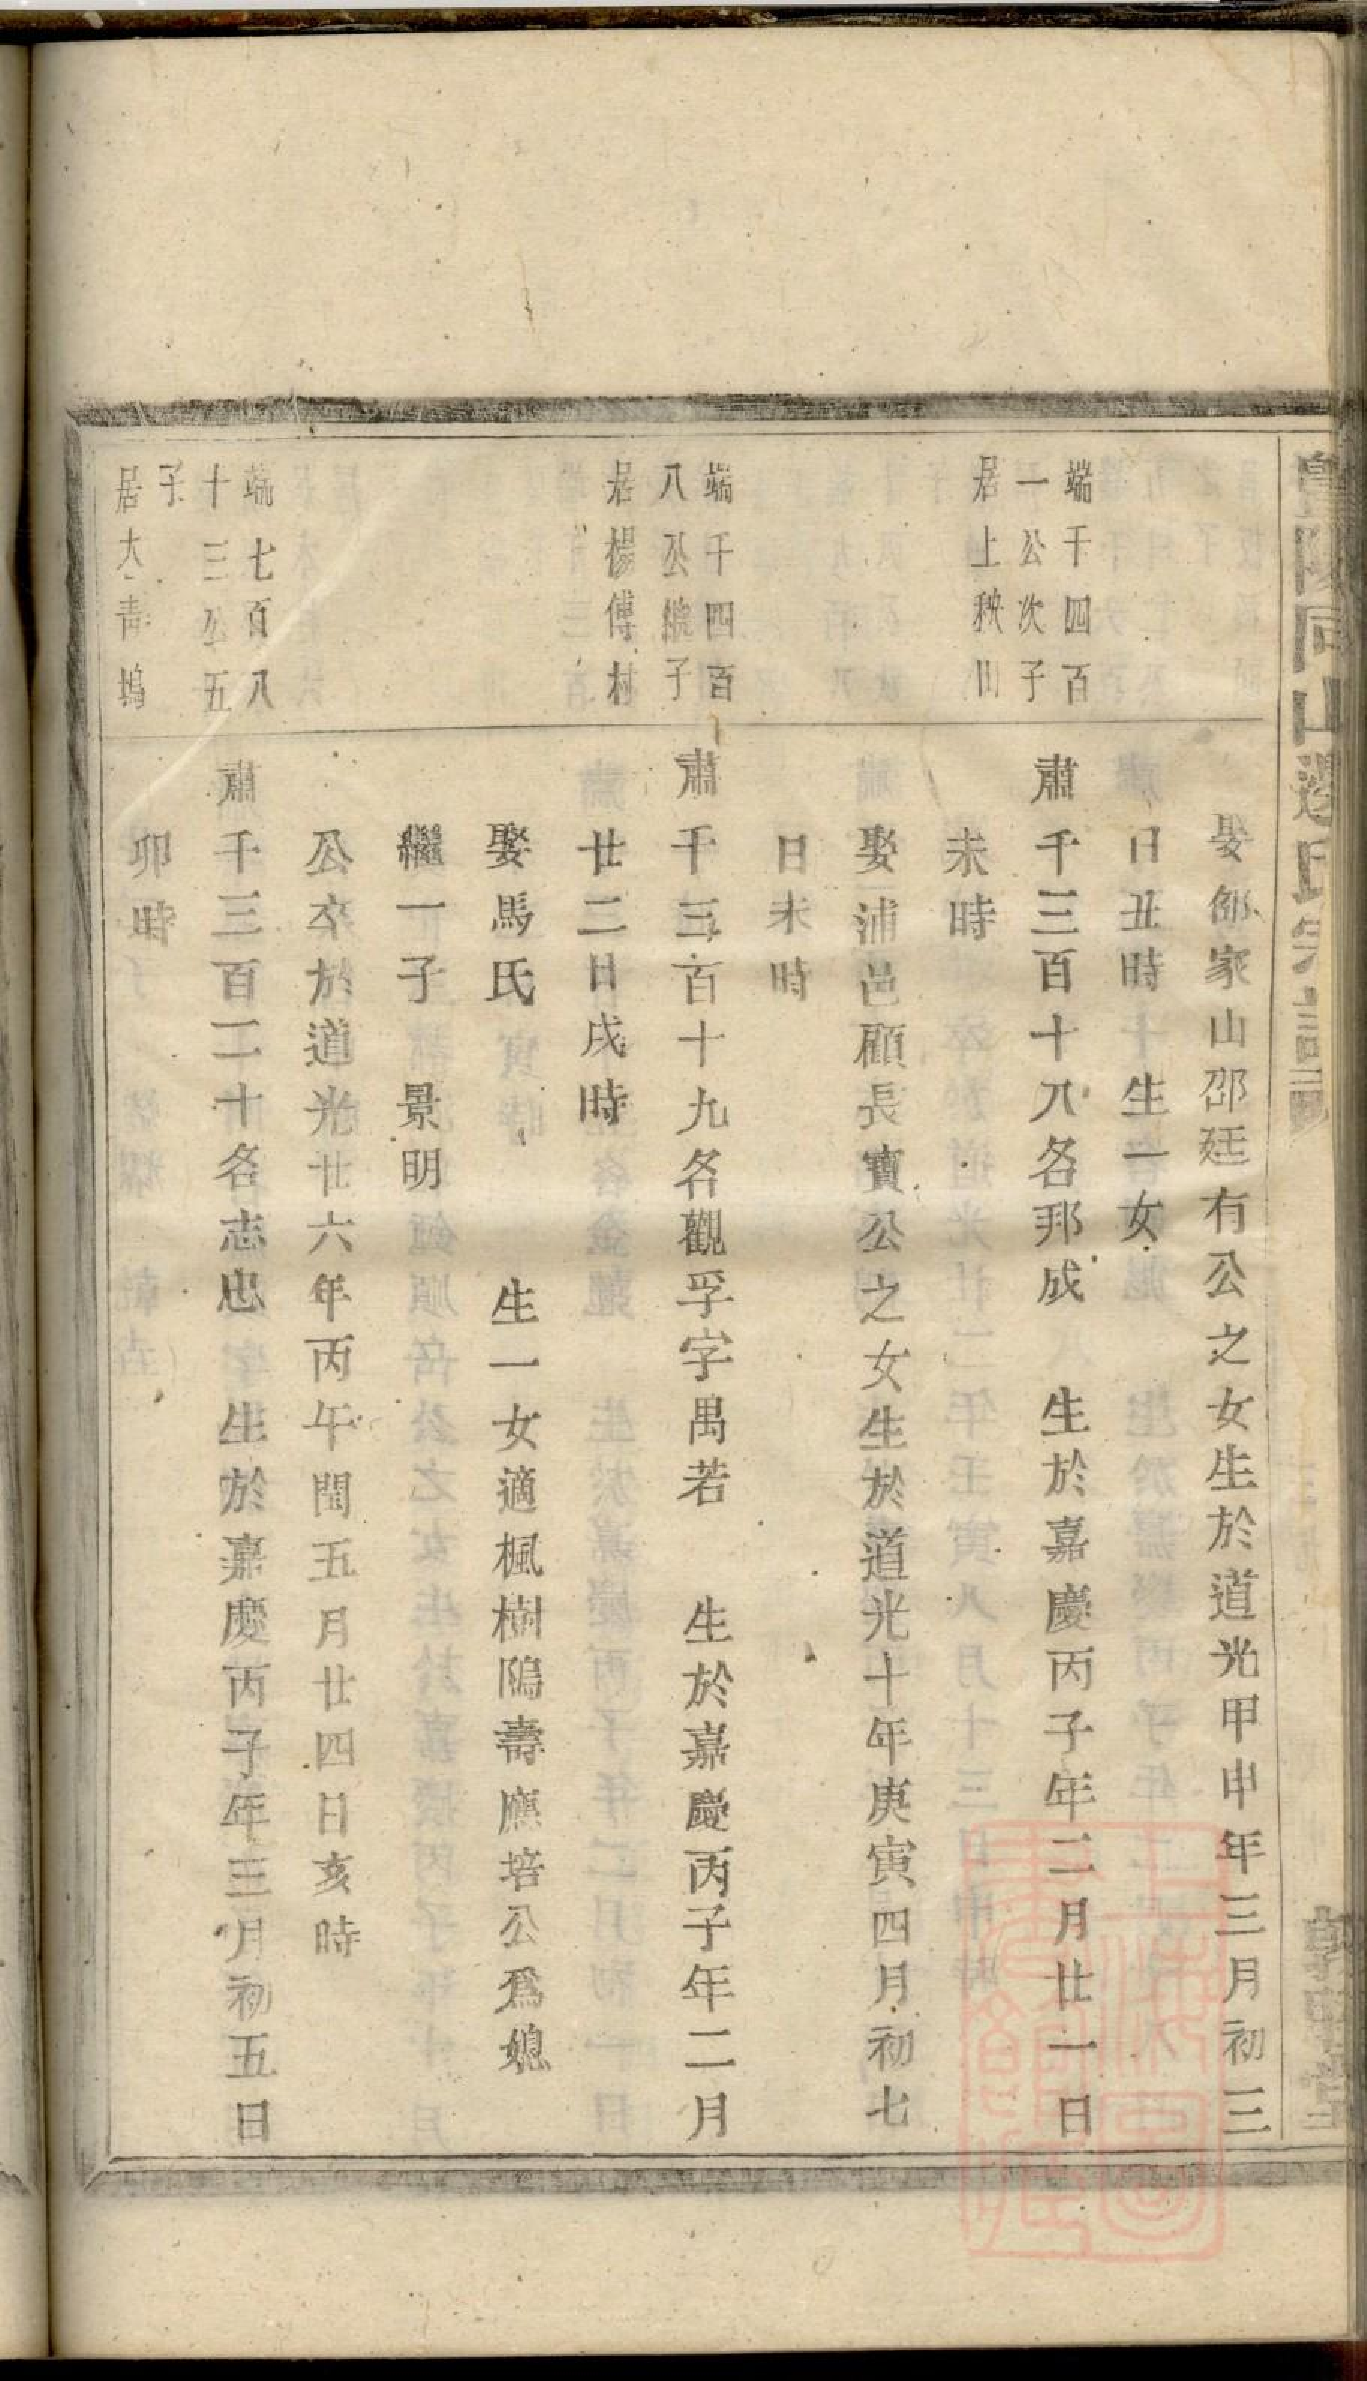 娶邵家山邵廷有公之女生於道光甲申年三月初三
日丑時　生一女
端千四百
一公次子
居上秧田
肅千三百十八名邦成　生於嘉慶丙子年二月廿一日
未時
娶浦邑顧長寶公之女生於道光十年庚寅四月初七
日未時
端千四百
八公繼子
居楊傅村
肅千三百十九名觀孚字禺若　生於嘉慶丙子年二月
廿二日戌時
娶馬氏　生一女適楓樹隝壽應培公爲媳
繼一子　景明
公卒於道光廿六年丙午閏五月廿四日亥時
端七百八
十三公五
子
居大青塢
肅千三百二十名志忠　生於嘉慶丙子年三月初五日
卯時